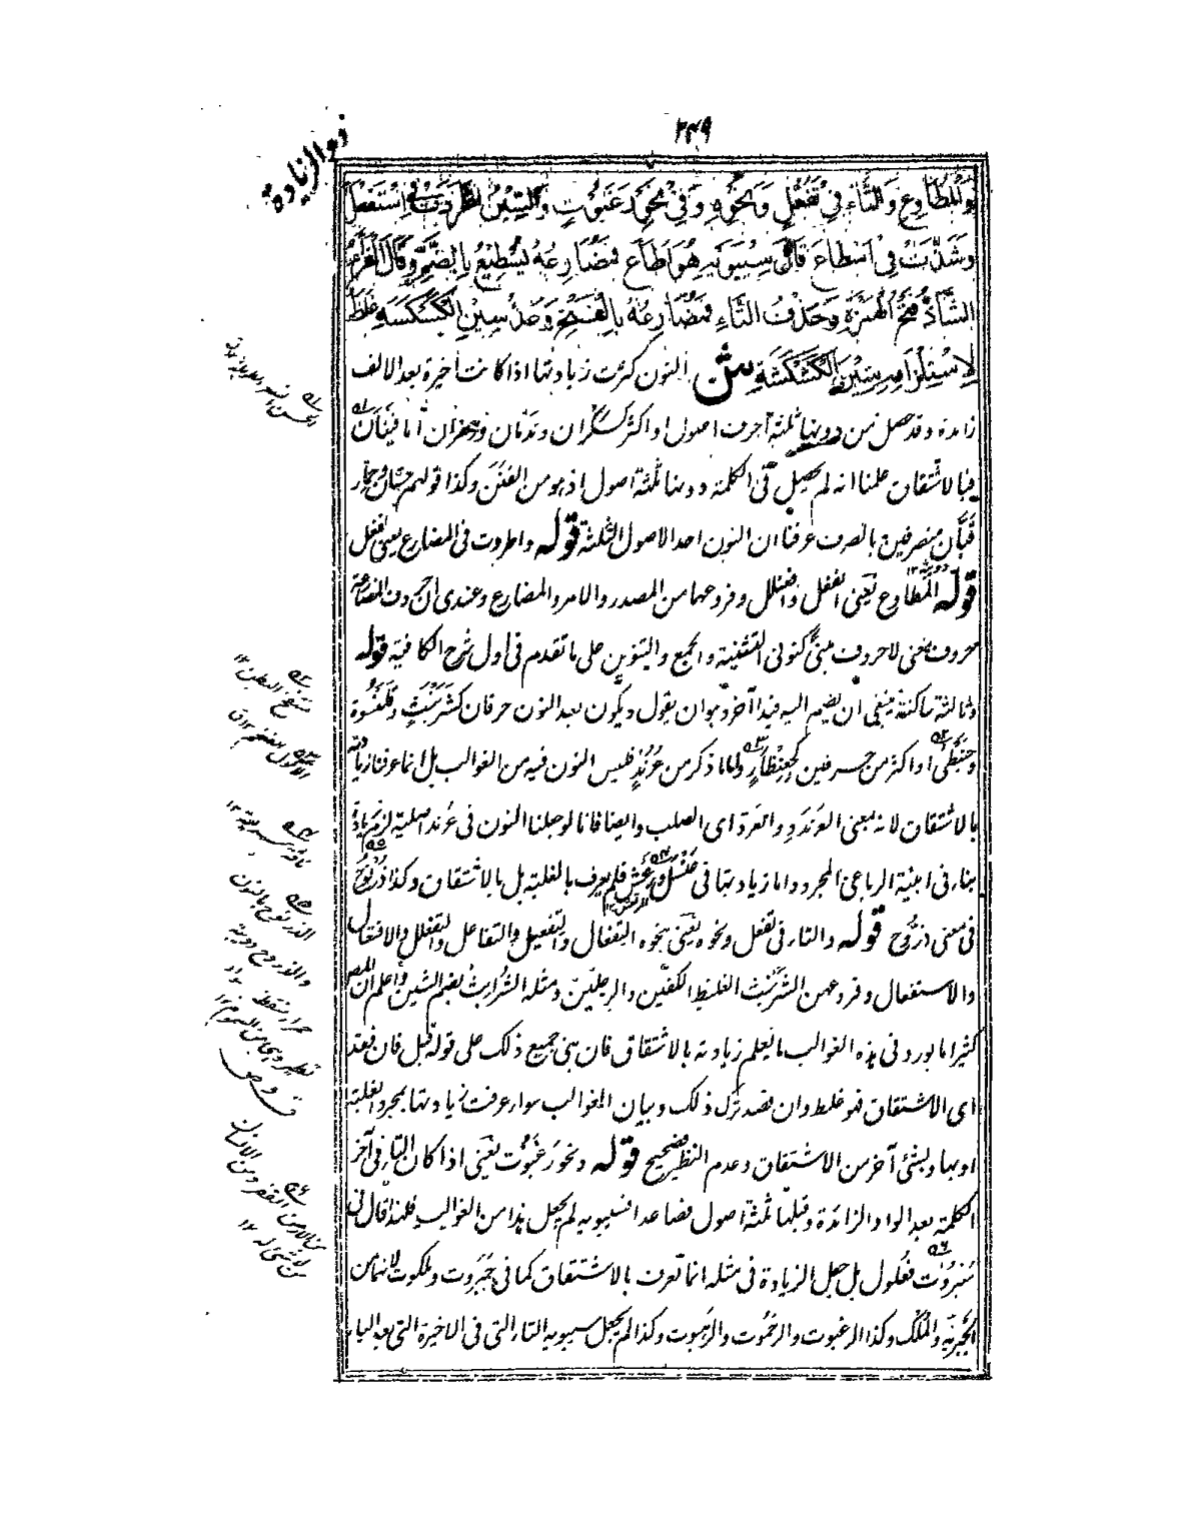 ۲۴۹
ذو الزيادة
وَالْمُطَاوِعِ وَالتَّاءُ فِي تَفَعُّلٍ وَنَحْوِهِ وَفِي نَحْوِ رَغَبُوْتٍ وَالسِّيْنُ اطَّرَدَتْ فِي اسْتَفْعَلَ
وَشَذَّتْ فِي اَسْطَاعَ قَالَ سِيْبَوَيْهِ هُوَ اَطَاعَ فَمُضَارِعُهُ يُسْطِيْعُ بِالضَّمِّ وَقَالَ الْفَرَّاءُ
الشَّاذُّ فَتْحُ الْهَمْزَةِ وَحَذْفُ التَّاءِ فَمُضَارِعُهُ بِالْفَتْحِ وَعَدُّ سِيْنِ الْكَسْكَسَةِ غَلَطٌ
لِاسْتِلْزَامِهِ شِيْنَ الْكَشْكَشَةِ ش النون كثرت زيادتها اذا كانت اخيرة بعد الالف
زائدة وقد حصل من دونها ثلثة احرف اصول او اكثر كسكران وندمان وزعفران اما فينان
فبالاشتقاق علمنا انه لم يحصل فى الكلمة دونها ثلثة اصول اذ هو من الفنن وكذا قولهم حسان وحمار
قبان منصرفين بالصرف عرفنا ان النون احد الاصول الثلثة قوله واطردت فى المضارع يعنى نفعل
قوله المطاوع يعنى انفعل وافعنلل وفروعهما من المصدر والامر والمضارع وعندى ان حروف المضارعة
حروف معنى لا حروف مبنى كنونى التثنية والجمع والتنوين على ما تقدم فى اول شرح الكافية قوله
وثالثة ساكنة ينبغى ان يضم اليه قيدا آخر وهو ان يقول ويكون بعد النون حرفان كشرنبث وقلنسوة
وحبنطى او اكثر من حرفين كجعنظار واما ما ذكر من عرند فليس النون فيه من الغوالب بل انما عرفنا زيادته
بالاشتقاق لانه بمعنى العرند والعرد اى الصلب وايضا فانا لو جعلنا النون فى عرند اصلية لزم زيادة
بناء فى ابنية الرباعى المجرد واما زيادتها فى عنسل ورعشن فلم يعرف بالغلبة بل بالاشتقاق وكذا ذرنوح
فى معنى ذروح قوله والتاء فى تفعل ونحوه يعنى بنحوه التفعال والتفعيل والتفاعل والتفعلل والافتعال
والاستفعال وفروعهن الشرنبث الغليظ الكفين والرجلين ومثله الشرابث بضم الشين واعلم ان المص
كثيرا ما يورد فى هذه الغوالب ما يعلم زيادته بالاشتقاق فان بنى جميع ذلك على قوله قبل فان فقد
اى الاشتقاق فهو غلط وان قصد ترك ذلك وبيان الغوالب سواء عرفت زيادتها بمجرد الغلبة
او بها وبشئ آخر من الاشتقاق وعدم النظير فصحيح قوله ونحو رغبوت يعنى اذا كان التاء فى آخر
الكلمة بعد الواو الزائدة وقبلها ثلثة اصول فصاعدا فسيبويه لم يجعل هذا من الغوالب فلهذا قال فى
سبروت فعلول بل جعل الزيادة فى مثله انما تعرف بالاشتقاق كما فى جبروت وملكوت لانهما من
الجبرية والملك وكذا الرغبوت والرحموت والرهبوت وكذا لم يجعل سيبويه التاء التى فى الاخيرة التى بعد الياء